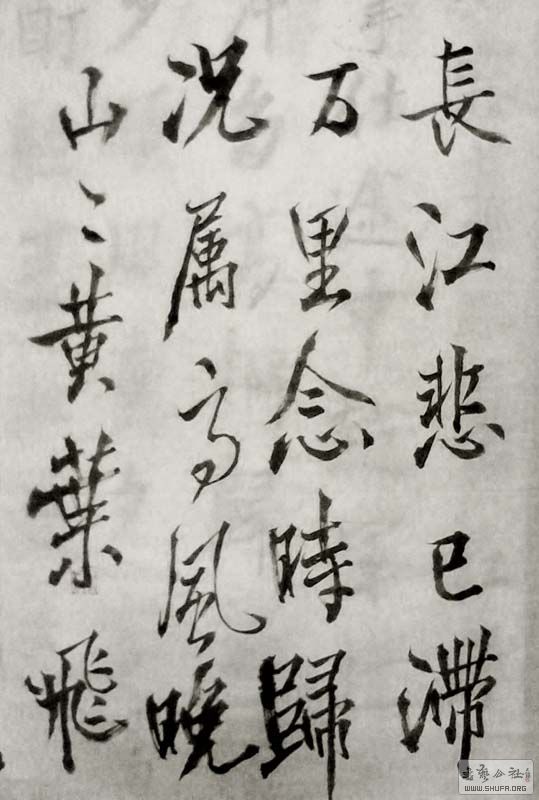 長江悲已滯
万里念時歸
况属高風晚
山〻黄葉飛
書藝公社
WWW.SHUFA.ORG